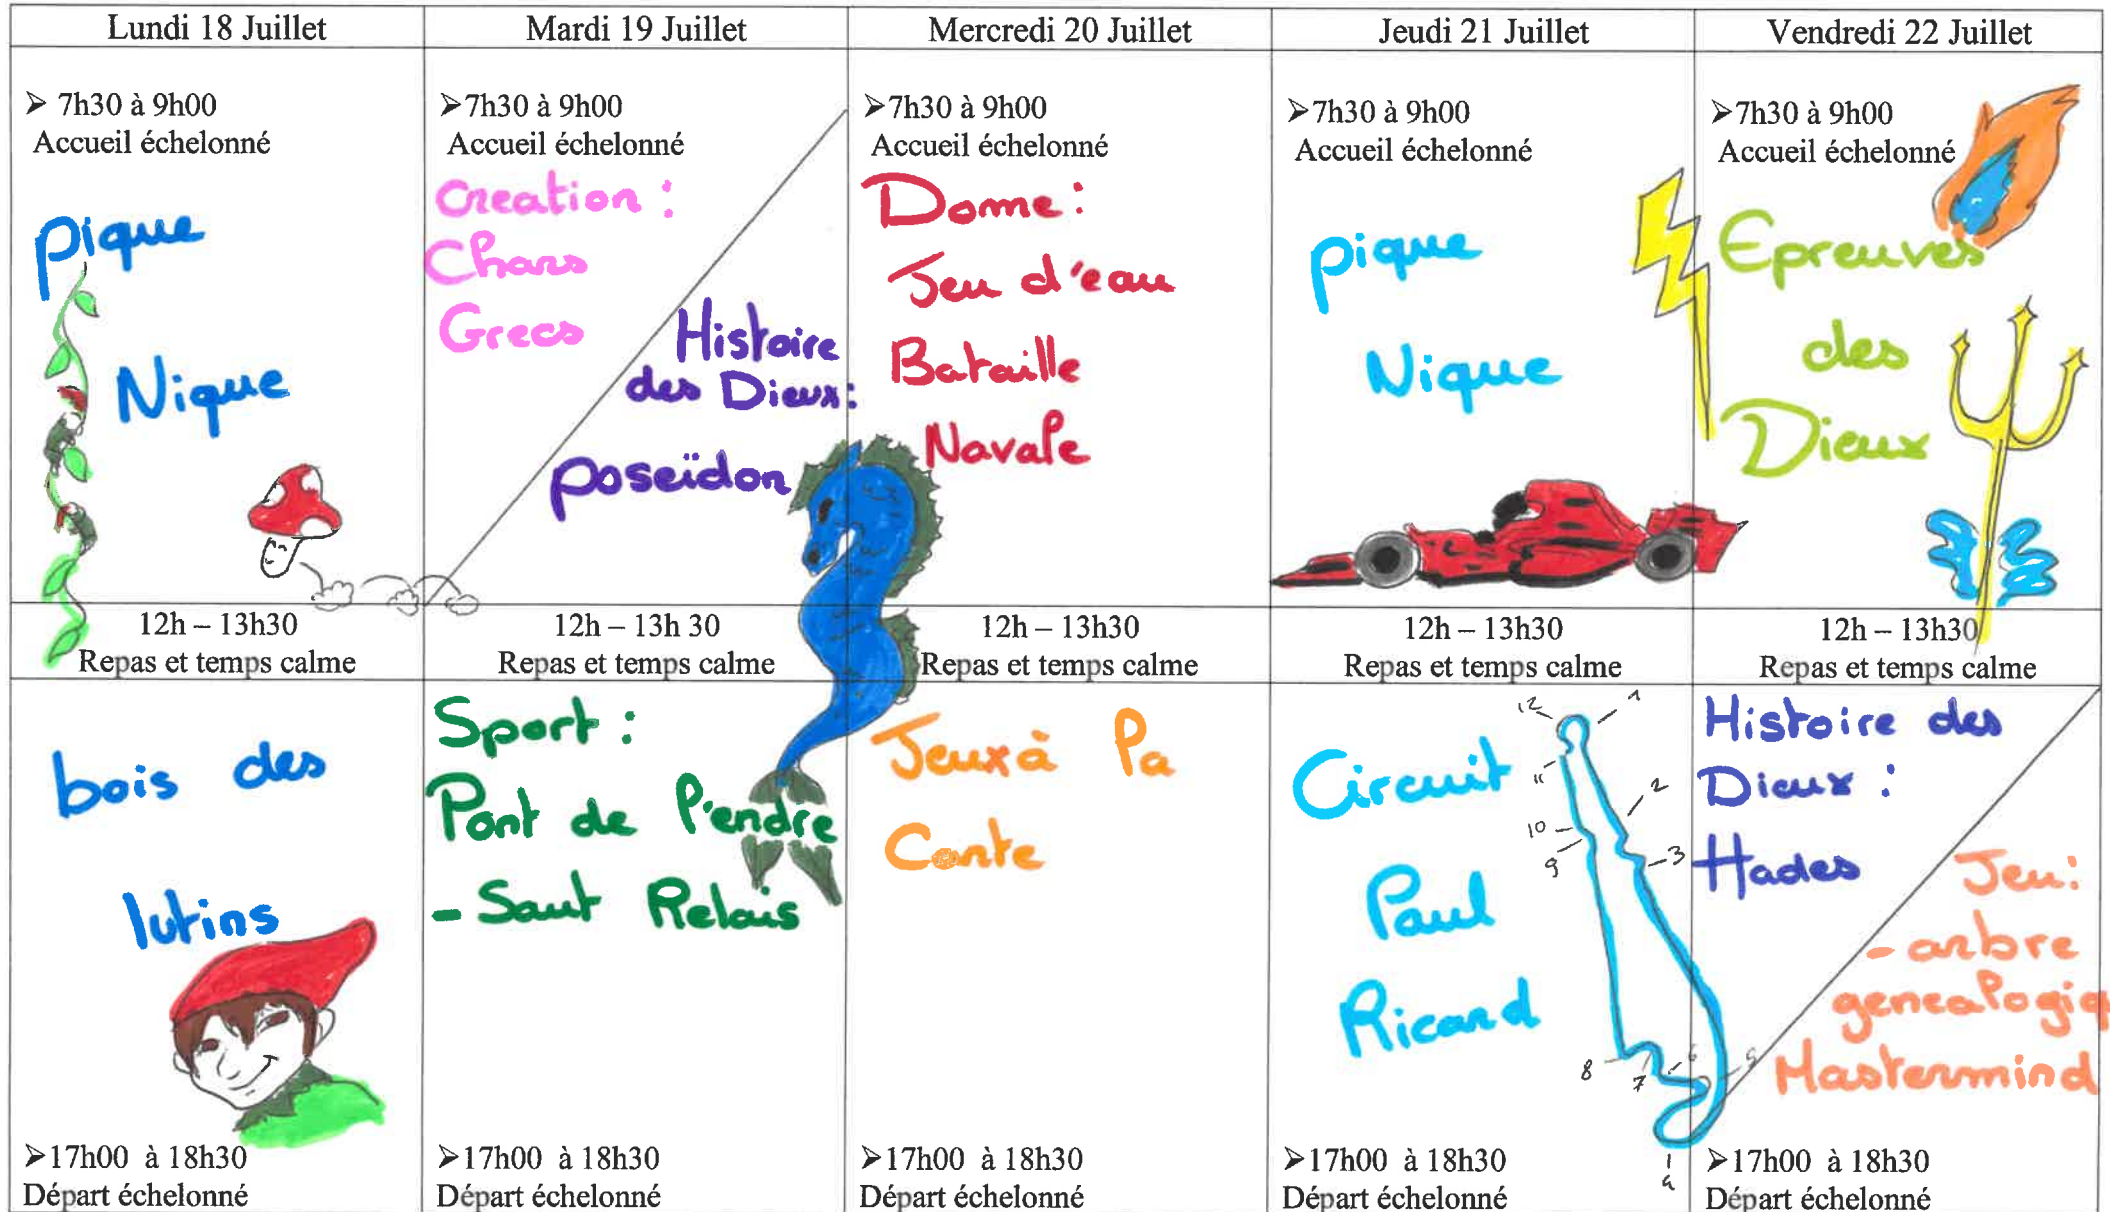 Lundi 18 Juillet
Mardi 19 Juillet
Mercredi 20 Juillet
Jeudi 21 Juillet
Vendredi 22 Juillet
➢ 7h30 à 9h00
Accueil échelonné
pique
Nique
➢7h30 à 9h00
Accueil échelonné
Creation :
Chars
Grecs
Histoire
des Dieux:
poseïdon
➢7h30 à 9h00
Accueil échelonné
Dome:
Jeu d'eau
Bataille
Navale
➢7h30 à 9h00
Accueil échelonné
pique
Nique
➢7h30 à 9h00
Accueil échelonné
Epreuves
des
Dieux
12h – 13h30
Repas et temps calme
12h – 13h 30
Repas et temps calme
12h – 13h30
Repas et temps calme
12h – 13h30
Repas et temps calme
12h – 13h30
Repas et temps calme
bois des
lutins
➢17h00 à 18h30
Départ échelonné
Sport :
Pont de l'endre
- Saut Relais
➢17h00 à 18h30
Départ échelonné
Jeux à la
Conte
➢17h00 à 18h30
Départ échelonné
Circuit
Paul
Ricard
12
1
11
2
10
9
3
8
7
6
5
4
➢17h00 à 18h30
Départ échelonné
Histoire des
Dieux :
Hades
Jeu:
- arbre
genealogiq
Mastermind
➢17h00 à 18h30
Départ échelonné